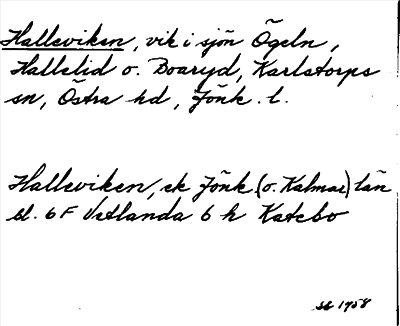 Halleviken, vik i sjön Ögeln,
Hallelid o. Boaryd, Karlstorps
sn, Östra hd, Jönk. l.
Halleviken, ek Jönk. (o. Kalmar) län
bl. 6 F Vetlanda 6 h Katebo
1958